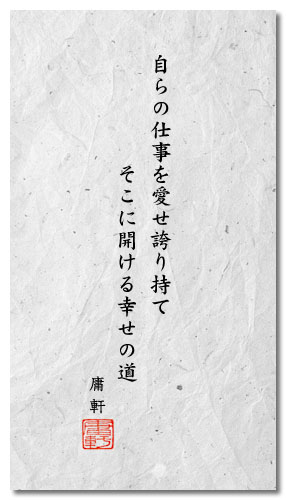 自らの仕事を愛せ誇り持て
そこに開ける幸せの道
庸軒